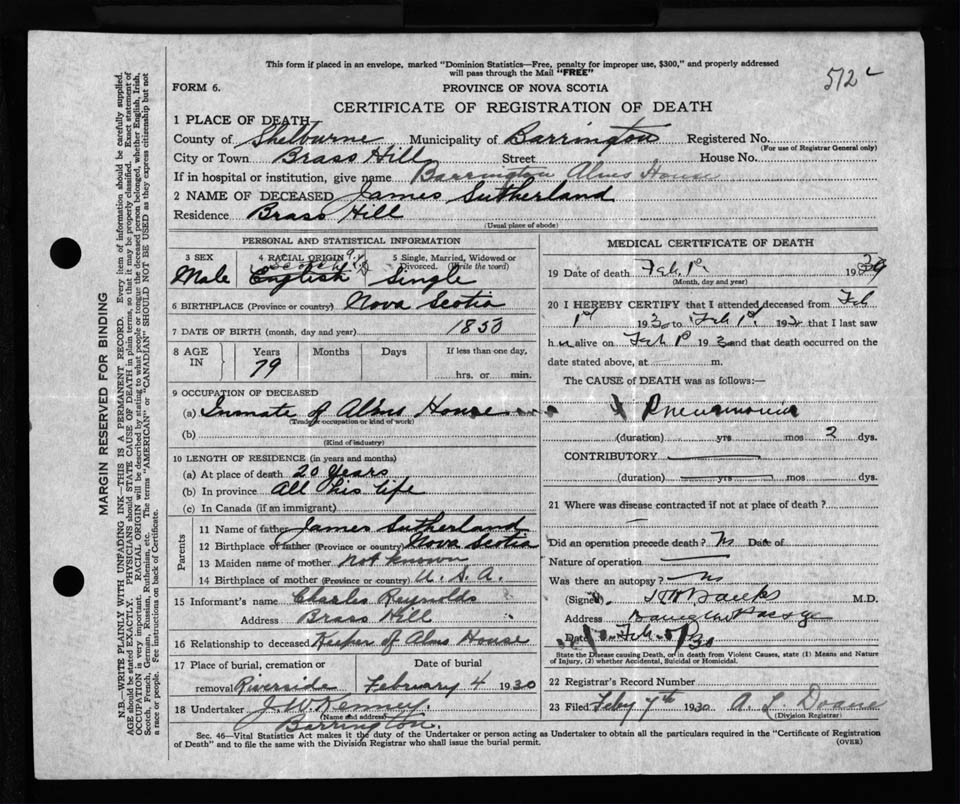 This form if placed in an envelope, marked "Dominion Statistics—Free, penalty for improper use, $300," and properly addressed
will pass through the Mail "FREE"
512
FORM 6.
PROVINCE OF NOVA SCOTIA
CERTIFICATE OF REGISTRATION OF DEATH
1 PLACE OF DEATH
County of Shelburne Municipality of Barrington Registered No.
(For use of Registrar General only)
City or Town Brass Hill Street House No.
If in hospital or institution, give name Barrington Alms House
2 NAME OF DECEASED James Sutherland
Residence Brass Hill
(Usual place of abode)
PERSONAL AND STATISTICAL INFORMATION
3 SEX 4 RACIAL ORIGIN 5 Single, Married, Widowed or Divorced. (Write the word)
Scotch
Male English Single
6 BIRTHPLACE (Province or country) Nova Scotia
7 DATE OF BIRTH (month, day and year) 1850
8 AGE IN Years Months Days If less than one day,
79 hrs. or min.
9 OCCUPATION OF DECEASED
(a) Inmate of Alms House
(Trade, occupation or kind of work)
(b)
(Kind of industry)
10 LENGTH OF RESIDENCE (in years and months)
(a) At place of death 20 Years
(b) In province All his life
(c) In Canada (if an immigrant)
Parents
11 Name of father James Sutherland
12 Birthplace of father (Province or country) Nova Scotia
13 Maiden name of mother not known
14 Birthplace of mother (Province or country) U. S. A.
15 Informant's name Charles Reynolds
Address Brass Hill
16 Relationship to deceased Keeper of Alms House
17 Place of burial, cremation or Date of burial
removal Riverside February 4 1930
18 Undertaker J. W. Kenney.
(Name and address)
Barrington.
MEDICAL CERTIFICATE OF DEATH
19 Date of death Feb. 1st 19
(Month, day and year)
20 I HEREBY CERTIFY that I attended deceased from Feb
1st 1930 to Feb 1st 19 that I last saw
h alive on Feb 1st 193 and that death occurred on the
date stated above, at m.
The CAUSE of DEATH was as follows:—
Pneumonia
(duration) yrs mos 2 dys.
CONTRIBUTORY
(duration) yrs mos dys.
21 Where was disease contracted if not at place of death?
Did an operation precede death? No Date of
Nature of operation
Was there an autopsy? no
(Signed) Banks M.D.
Address
Date Feb 30
State the Disease causing Death, or in death from Violent Causes, state (1) Means and Nature
of Injury, (2) whether Accidental, Suicidal or Homicidal.
22 Registrar's Record Number
23 Filed Feby 7th 1930 A. L. Doane
(Division Registrar)
Sec. 46—Vital Statistics Act makes it the duty of the Undertaker or person acting as Undertaker to obtain all the particulars required in the "Certificate of Registration
of Death" and to file the same with the Division Registrar who shall issue the burial permit.
(OVER)
MARGIN RESERVED FOR BINDING
N.B.—WRITE PLAINLY WITH UNFADING INK—THIS IS A PERMANENT RECORD. Every item of information should be carefully supplied.
AGE should be stated EXACTLY. PHYSICIANS should STATE CAUSE OF DEATH in plain terms, so that it may be properly classified. Exact statement of
OCCUPATION is very important. RACIAL ORIGIN will be described by stating to what people or tongue the deceased person belonged, whether English, Irish,
Scotch, French, German, Russian, Ruthenian, etc. The terms "AMERICAN" or "CANADIAN" SHOULD NOT BE USED as they express citizenship but not
a race or people. See instructions on back of Certificate.